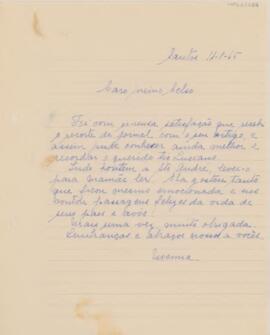 Santos 14-1-65
Caro primo Celso
Foi com imensa satisfação que recebi
o recorte do jornal com o seu artigo, e
assim pude conhecer ainda melhor e
recordar o querido tio Luciano.
Indo hontem a Sto André, levei-o
para mamãe ler. Ela gostou tanto
que ficou mesmo emocionada e nos
contou passagens felizes da vida de
seus paes e avós!
Mais uma vez muito obrigada.
Lembranças e abraços nossos a vocês.